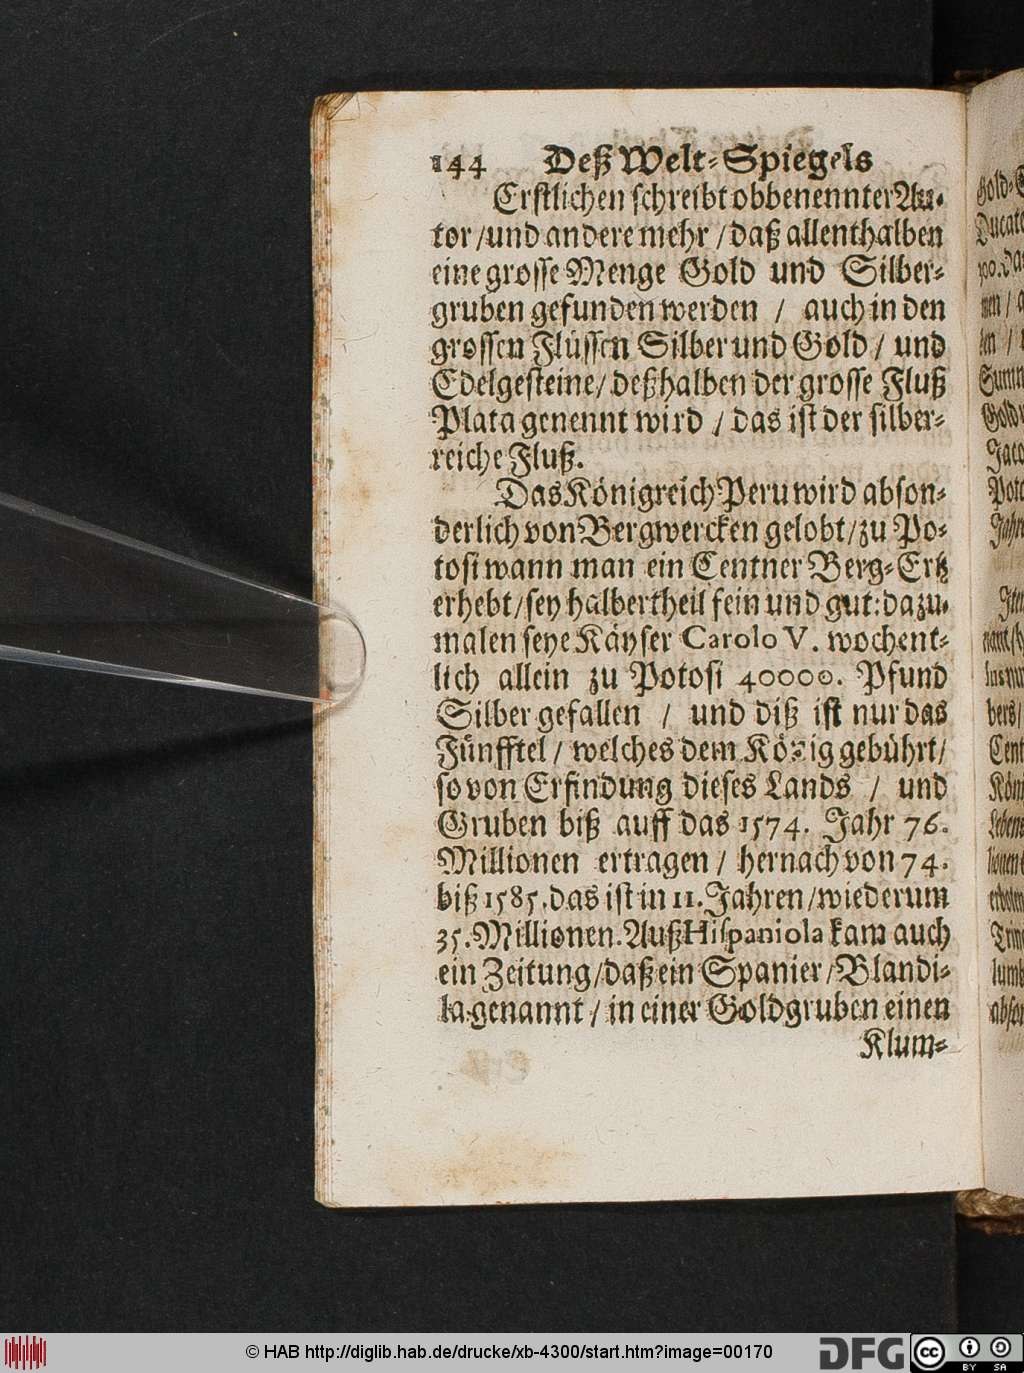 144 Deß Welt-Spiegels
Erstlichen schreibt obbenennter Au-
tor / und andere mehr / daß allenthalben
eine grosse Menge Gold und Silber-
gruben gefunden werden / auch in den
grossen Flüssen Silber und Gold / und
Edelgesteine / deßhalben der grosse Fluß
Plata genennt wird / das ist der silber-
reiche Fluß.
Das Königreich Peru wird abson-
derlich von Bergwercken gelobt / zu Po-
tosi wann man ein Centner Berg-Ertz
erhebt / sey halbertheil fein und gut: dazu-
malen seye Käyser Carolo V. wochent-
lich allein zu Potosi 40000. Pfund
Silber gefallen / und diß ist nur das
Fünfftel / welches dem König gebührt /
so von Erfindung dieses Lands / und
Gruben biß auff das 1574. Jahr 76.
Millionen ertragen / hernach von 74.
biß 1585. das ist in 11. Jahren / wiederum
35. Millionen. Auß Hispaniola kam auch
ein Zeitung / daß ein Spanier / Blandi-
la genannt / in einer Goldgruben einen
Klum-
Gold-
Ducat
100. Da
Summ
Gold
Jaco
Poto
Jahr
bers /
Cent
Köni
Lebens
© HAB http://diglib.hab.de/drucke/xb-4300/start.htm?image=00170
DFG
cc BY SA